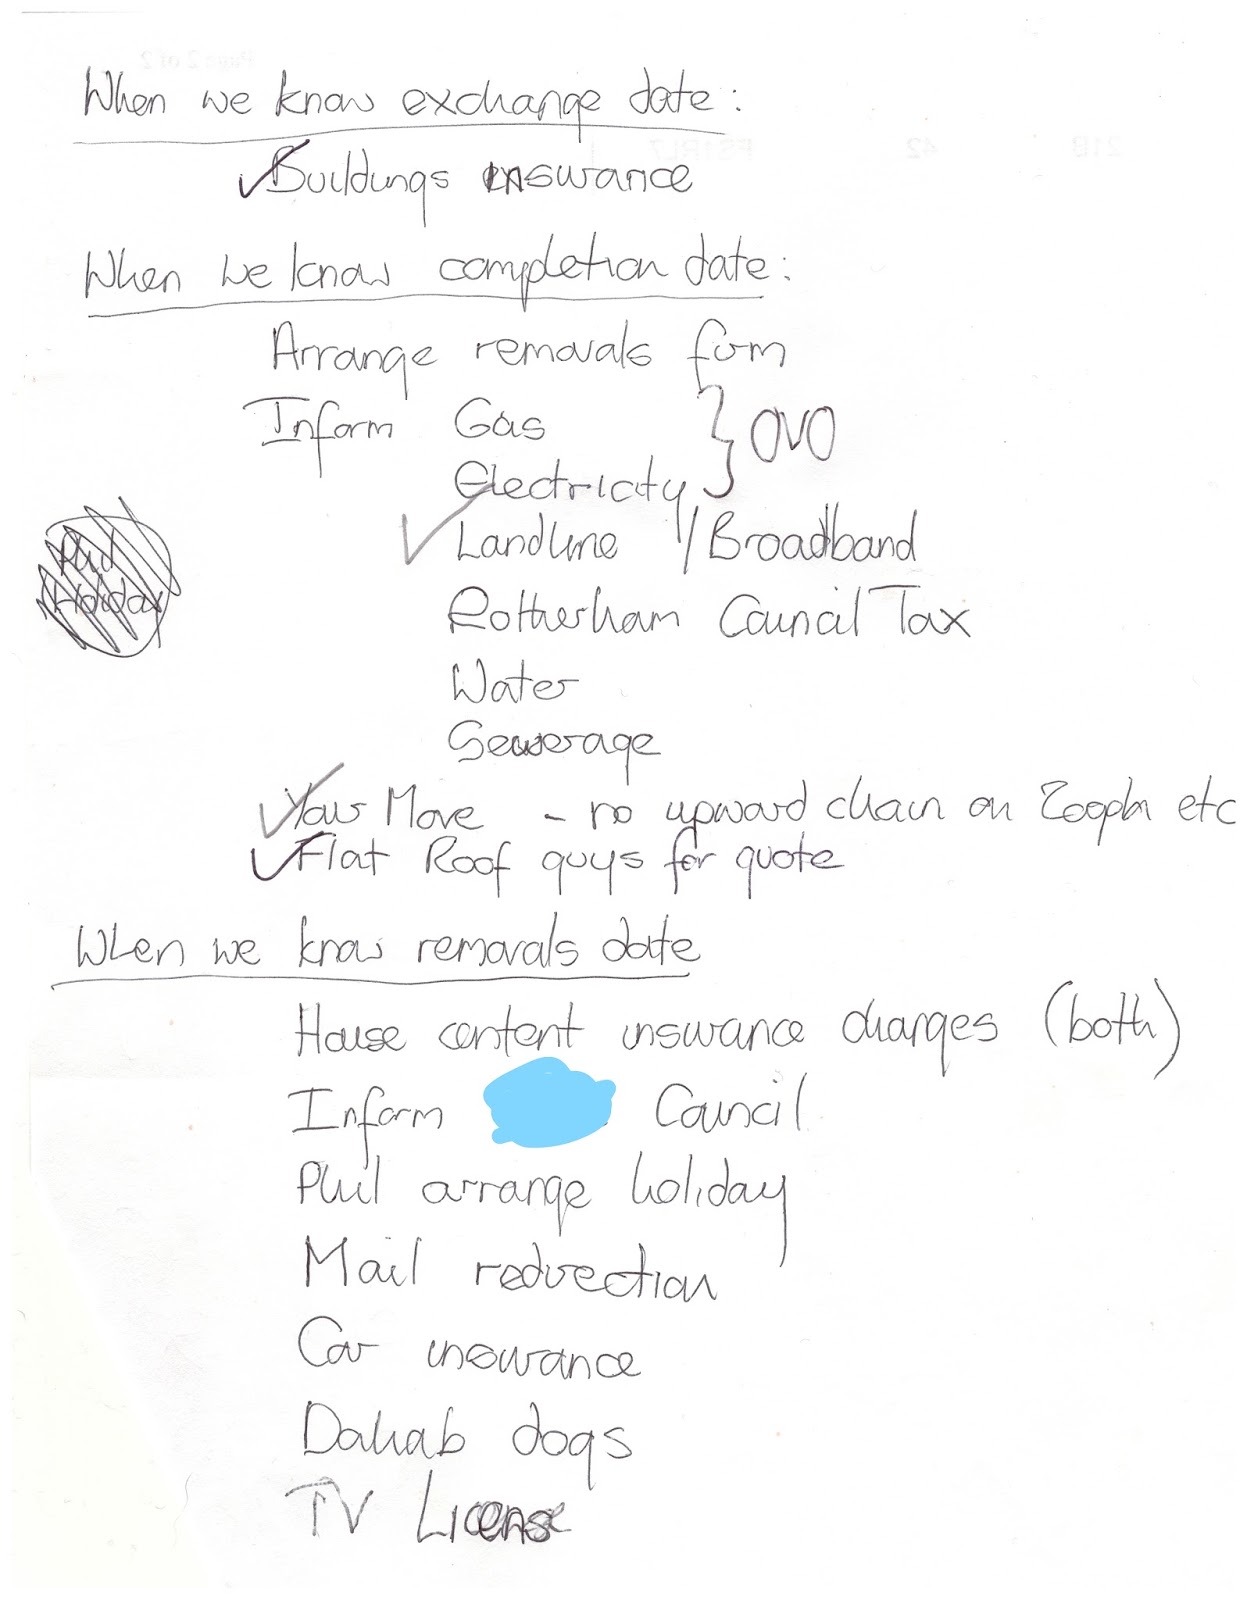 When we know exchange date:
✓Buildings insurance
When we know completion date:
Arrange removals firm
Inform Gas } OVO
Electricity
✓ Landline / Broadband
Phil
Holiday
Rotherham Council Tax
Water
Sewerage
✓Your Move - no upward chain on Zoopla etc
✓Flat Roof guys for quote
When we know removals date
House content insurance changes (both)
Inform Council
Phil arrange holiday
Mail redirection
Car insurance
Dahab dogs
TV License